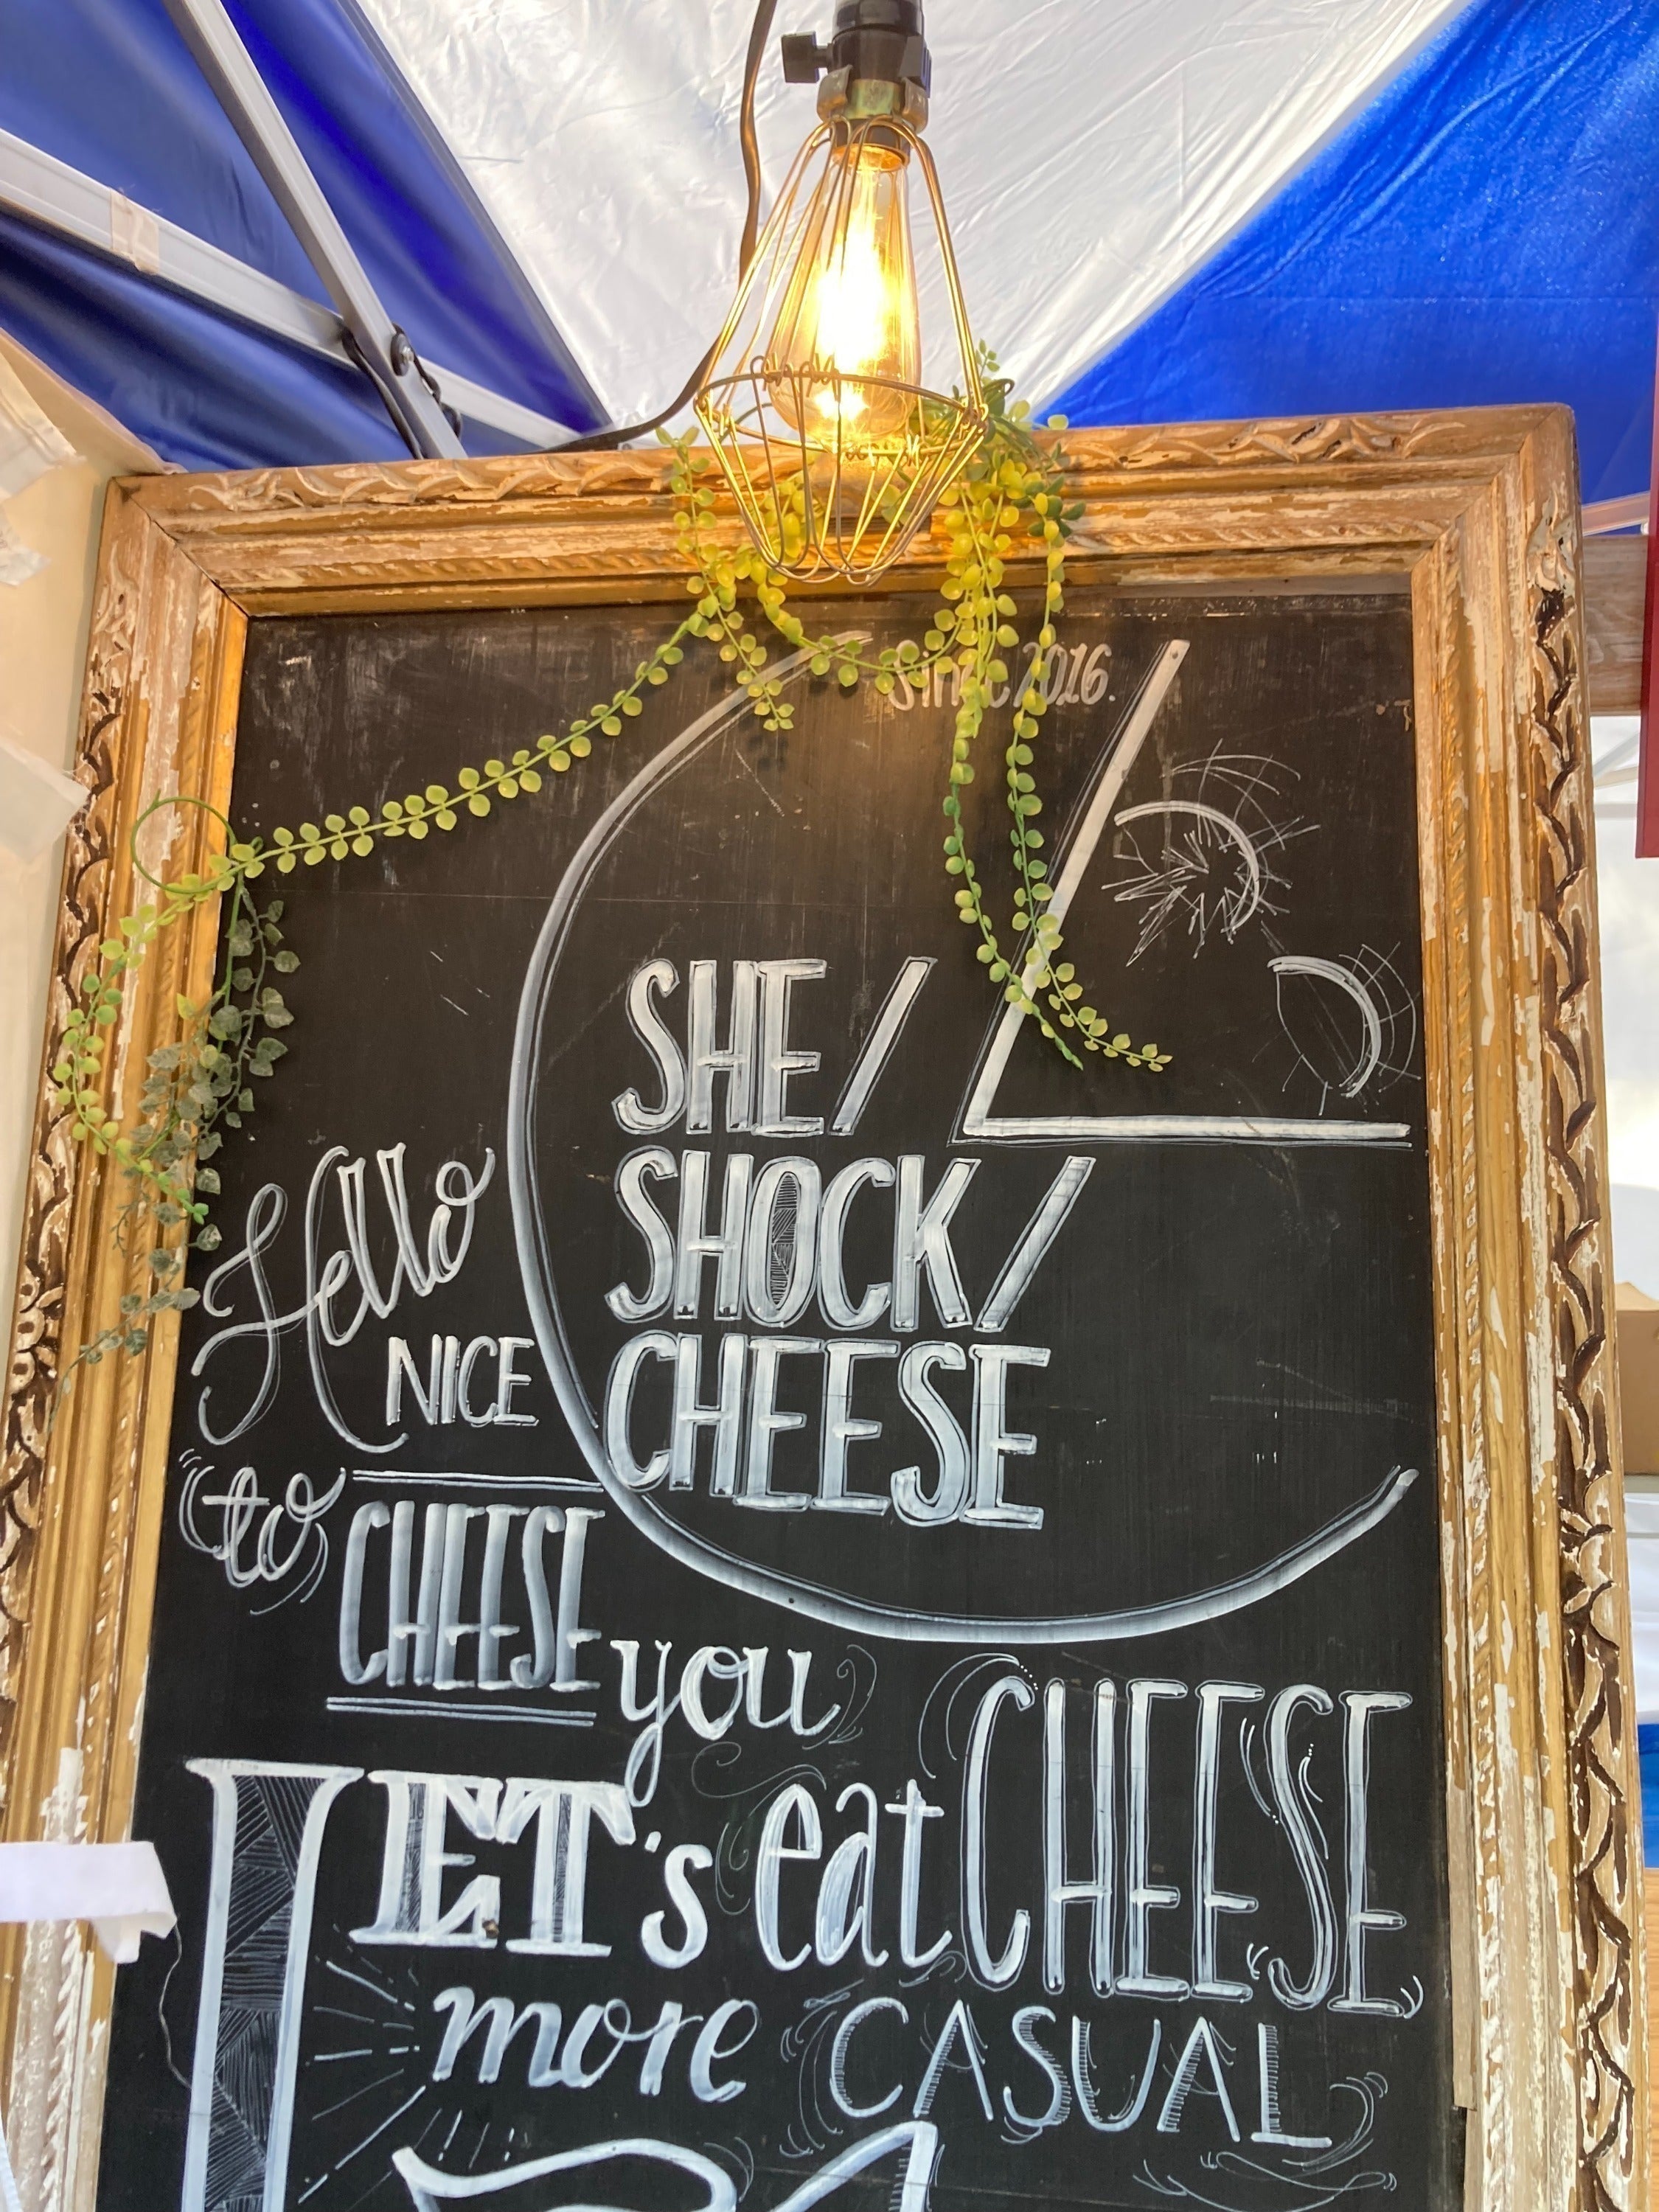 Since 2016.
SHE/
SHOCK/
CHEESE
Hello
NICE
to CHEESE you
LET's eat CHEESE
more CASUAL